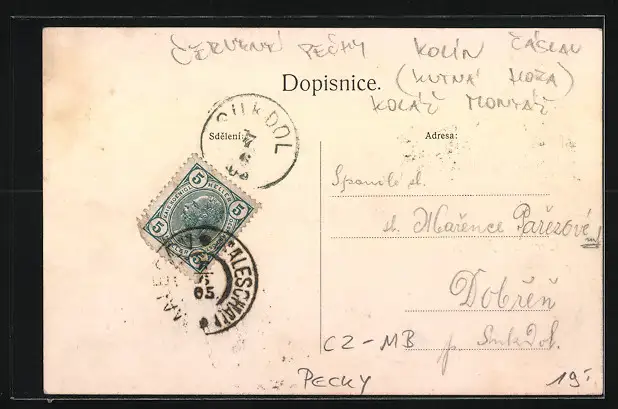 ČERVENÝ PEČKY KOLÍN ČÁSLAV
(KUTNÁ HORA)
Dopisnice.
KOLÁŽ MONTÁŽ
SUKDOL
Sdělení:
Adresa:
7
6
5 HELLER 5
Spanilé sl.
sl. Mařence Pařezové
MALESCHAU
05
Dobřeň
p. Sukdol.
CZ-MB
PECKY
19,-